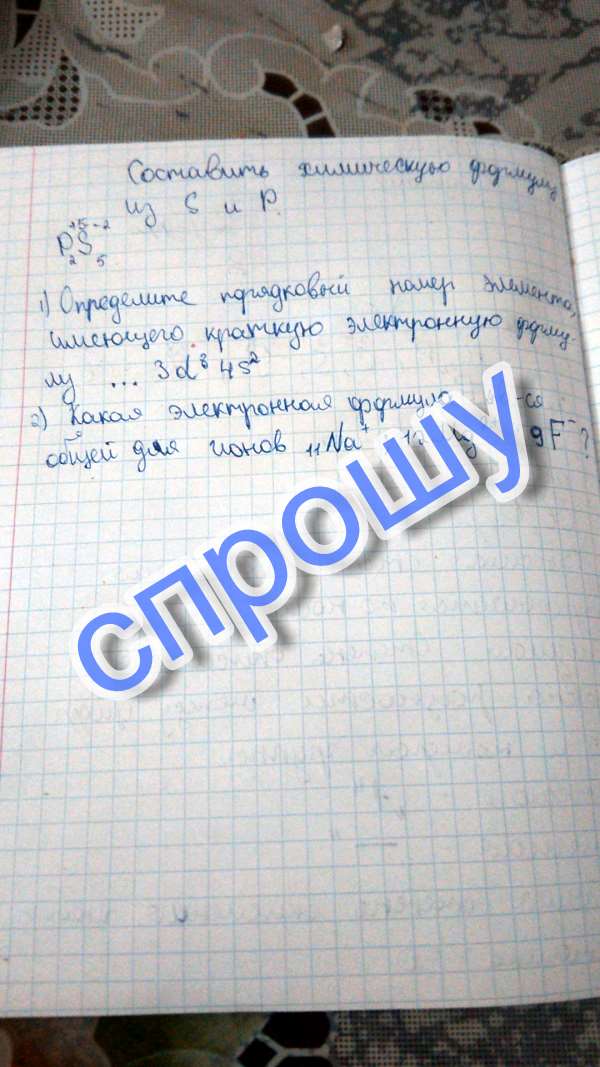 Составить химическую формулу
из S и P.
+5 -2
PS
2 5
1) Определите порядковый номер элемента,
имеющего краткую электронную форму-
лу ... 3d⁸ 4s²
2) Какая электронная формула -ся
общей для ионов ₁₁Na⁺ ₉F⁻?
спрошу